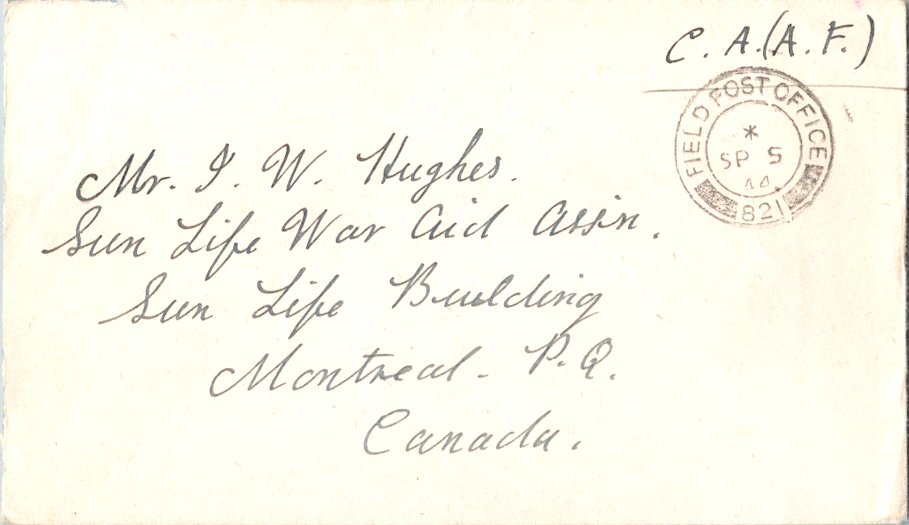 C. A. (A. F.)
FIELD POST OFFICE
*
SP 5
44
821
Mr. I. W. Hughes.
Sun Life War Aid Ass'n.
Sun Life Building
Montreal - P. Q.
Canada.